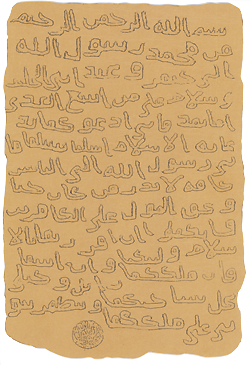 بسم الله الرحمن الرحيم
من محمد رسول الله
الى جيفر وعبد ابني الجلند
ى وسلام على من اتبع الهدى
اما بعد فاني ادعوكما بد
عايه الاسلام اسلما تسلما فا
ني رسول الله الى الناس
كافه لانذر من كان حيا
ويحق القول على الكافرين
فانكما ان اقررتما بالا
سلام وليتكما وان ابيتما
فان ملككما وخيلي
تحل بساحتكما وتظهر نبو
تي على ملككما